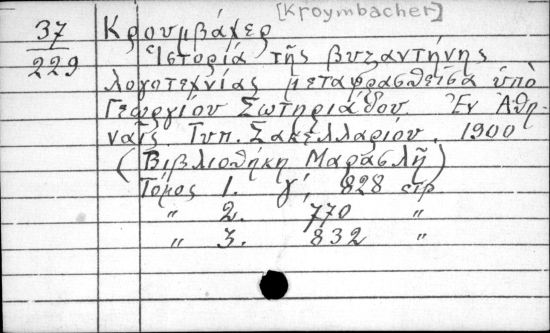 [Kroymbacher]
37 Κρουμβάχερ
229 Ἱστορία τῆς βυζαντήνης
λογοτεχνίας μεταφρασθεῖσα ὑπὸ
Γεωργίου Σωτηριάδου. Ἐν Ἀθή-
ναῖς. Τυπ. Σακελλαρίου. 1900
(Βιβλιοθήκη Μαρασλῆ)
Τόμος 1. γ', 828 σερ
" 2. 770 "
" 3. 832 "